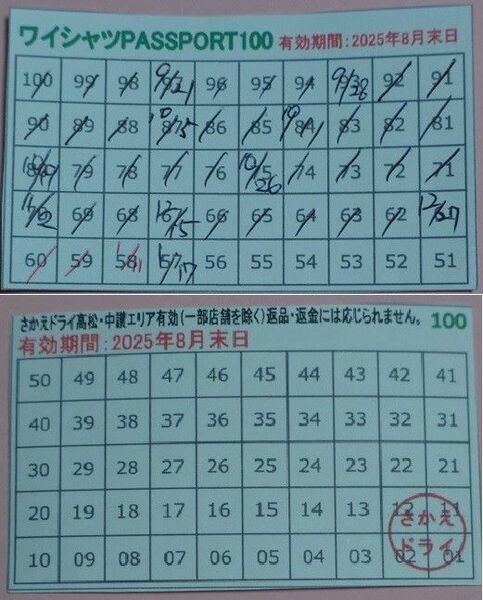 ワイシャツPASSPORT100 有効期間：2025年8月末日
100 99 98 9/21 96 95 94 9/28 92 91
90 89 88 10/15 86 85 83 82 81
79 78 77 76 10/26 74 73 72 71
69 68 12/15 66 65 64 63 62 12/27
60 59 58 1/17 56 55 54 53 52 51
さかえドライ高松・中讃エリア有効(一部店舗を除く)返品・返金には応じられません。 100
有効期間：2025年8月末日
50 49 48 47 46 45 44 43 42 41
40 39 38 37 36 35 34 33 32 31
30 29 28 27 26 25 24 23 22 21
20 19 18 17 16 15 14 13 12 11
さかえ
ドライ
10 09 08 07 06 05 04 03 02 01